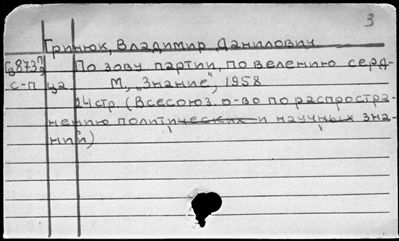 3
Гринюк, Владимир Данилович
По зову партии, по велению серд-
с-п ца М., „Знание", 1958
24 стр (Всесоюз. о-во по распростра-
нению политических и научных зна-
ний)